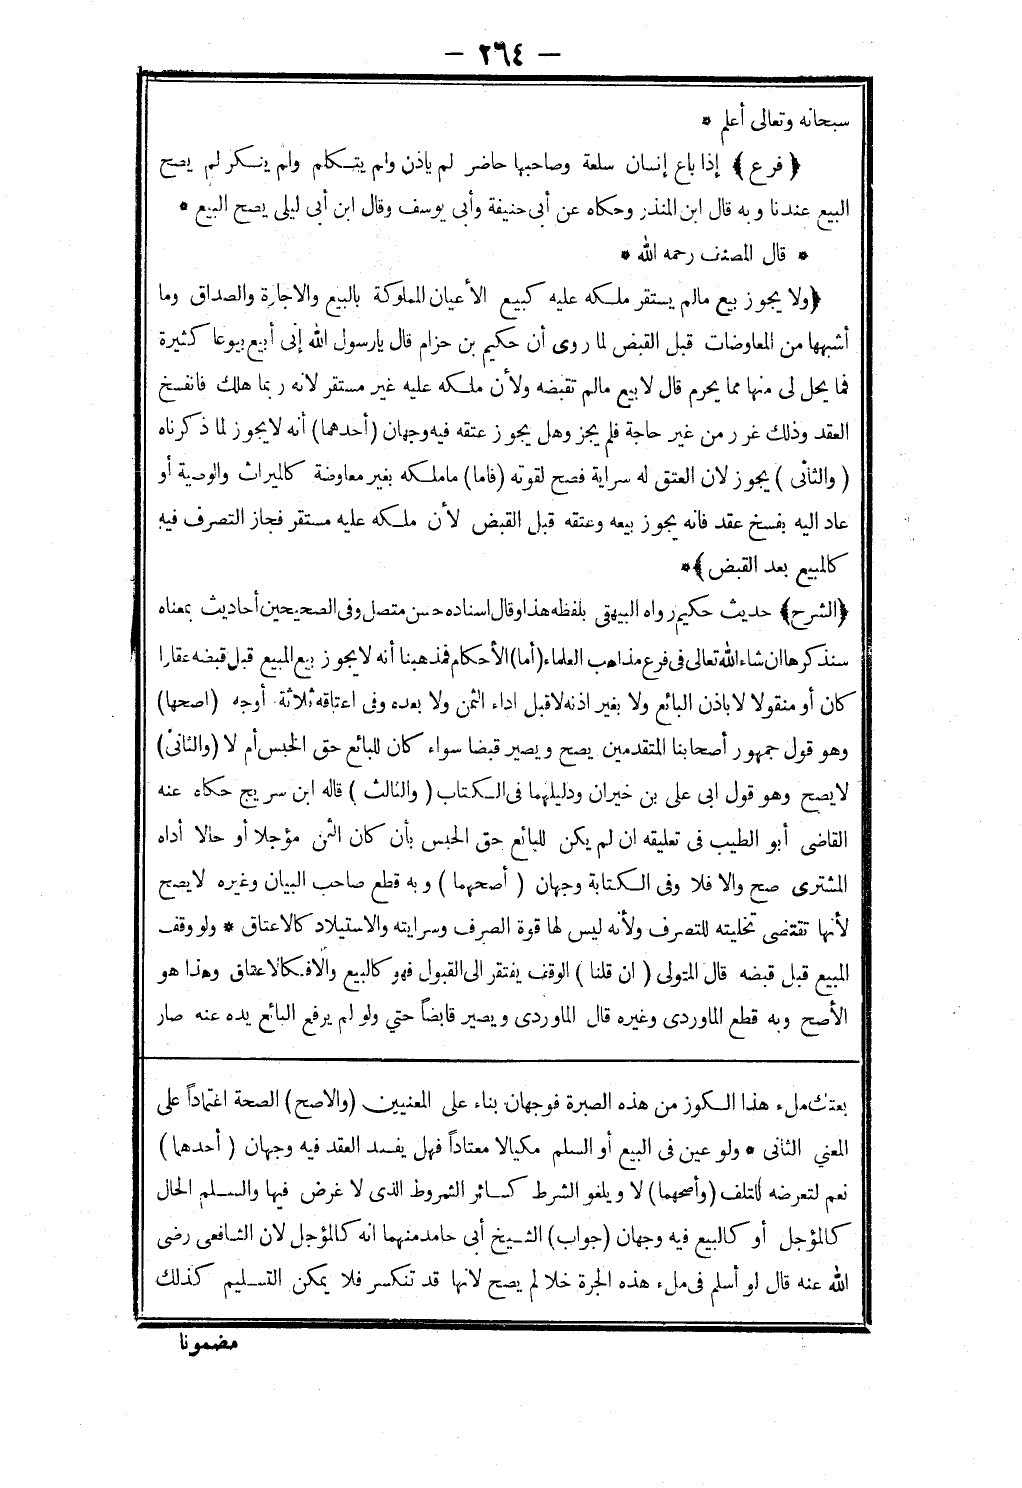 — ٢٦٤ —
سبحانه وتعالى أعلم *
﴿ فرع ﴾ إذا باع إنسان سلعة وصاحبها حاضر لم يأذن ولم يتكلم ولم ينكر لم يصح
البيع عندنا وبه قال ابن المنذر وحكاه عن أبى حنيفة وأبى يوسف وقال ابن أبى ليلى يصح البيع *
* قال المصنف رحمه الله *
﴿ولا يجوز بيع مالم يستقر ملكه عليه كبيع الأعيان المملوكة بالبيع والاجارة والصداق وما
أشبهها من المعاوضات قبل القبض لما روى أن حكيم بن حزام قال يارسول الله إنى أبيع بيوعا كثيرة
فما يحل لى منها مما يحرم قال لا بيع مالم تقبضه ولأن ملكه عليه غير مستقر لانه ربما هلك فانفسخ
العقد وذلك غرر من غير حاجة فلم يجز وهل يجوز عتقه فيه وجهان (أحدهما) أنه لايجوز لما ذكرناه
( والثانى ) يجوز لان العتق له سراية فصح لقوته (فاما) ماملكه بغير معاوضة كالميراث والوصية أو
عاد اليه بفسخ عقد فانه يجوز بيعه وعتقه قبل القبض لأن ملكه عليه مستقر فجاز التصرف فيه
كالمبيع بعد القبض ﴾*
﴿الشرح﴾ حديث حكيم رواه البيهقى بلفظه هذا وقال اسناده حسن متصل وفى الصحيحين أحاديث بمعناه
سنذكرها ان شاء الله تعالى فى فرع مذاهب العلماء (أما) الأحكام فمذهبنا أنه لا يجوز بيع المبيع قبل قبضه عقارا
كان أو منقولا لا باذن البائع ولا بغير اذنه لا قبل اداء الثمن ولا بعده وفى اعتاقه ثلاثة أوجه (اصحها)
وهو قول جمهور أصحابنا المتقدمين يصح ويصير قبضا سواء كان للبائع حق الحبس أم لا (والثانى)
لايصح وهو قول ابى على بن خيران ودليلهما فى الكتاب ( والثالث ) قاله ابن سريج حكاه عنه
القاضى أبو الطيب فى تعليقه ان لم يكن للبائع حق الحبس بأن كان الثمن مؤجلا أو حالا أداه
المشترى صح والا فلا وفى الكتابة وجهان ( أصحهما ) وبه قطع صاحب البيان وغيره لايصح
لأنها تقتضى تخليته للتصرف ولأنه ليس لها قوة الصرف وسرايته والاستيلاد كالاعتاق * ولو وقف
المبيع قبل قبضه قال المتولى ( ان قلنا ) الوقف يفتقر الى القبول فهو كالبيع والا فكالاعتاق وهذا هو
الأصح وبه قطع الماوردى وغيره قال الماوردى ويصير قابضاً حتي ولو لم يرفع البائع يده عنه صار
بعتك ملء هذا الكوز من هذه الصبرة فوجهان بناء على المعنيين (والاصح) الصحة اعتماداً على
المعني الثانى * ولو عين فى البيع أو السلم مكيالا معتاداً فهل يفسد العقد فيه وجهان ( أحدهما )
نعم لتعرضه للتلف (وأصحهما) لا ويلغو الشرط كسائر الشروط الذى لا غرض فيها والسلم الحال
كالمؤجل أو كالبيع فيه وجهان (جواب) الشيخ أبى حامد منهما انه كالمؤجل لان الشافعى رضى
الله عنه قال لو أسلم فى ملء هذه الجرة خلا لم يصح لانها قد تنكسر فلا يمكن التسليم كذلك
مضمونا